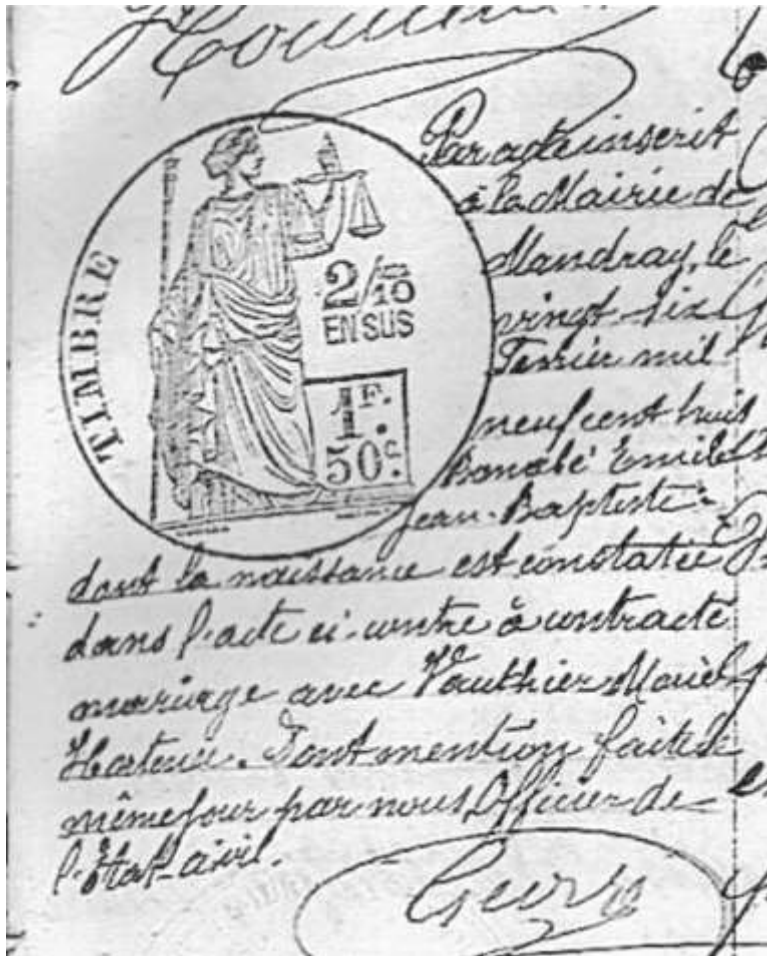 TIMBRE
2/10
EN SUS
1F.
50c.
Par acte inscrit
à la Mairie de
Mandray, le
vingt-six
Fevrier mil
neuf cent huit
Emile
Jean-Baptiste
dont la naissance est constatée
dans l'acte ci-contre à contracté
mariage avec Vauthier Marie
Hortense. Dont mention faite le
même jour par nous Officier de
l'Etat-civil.